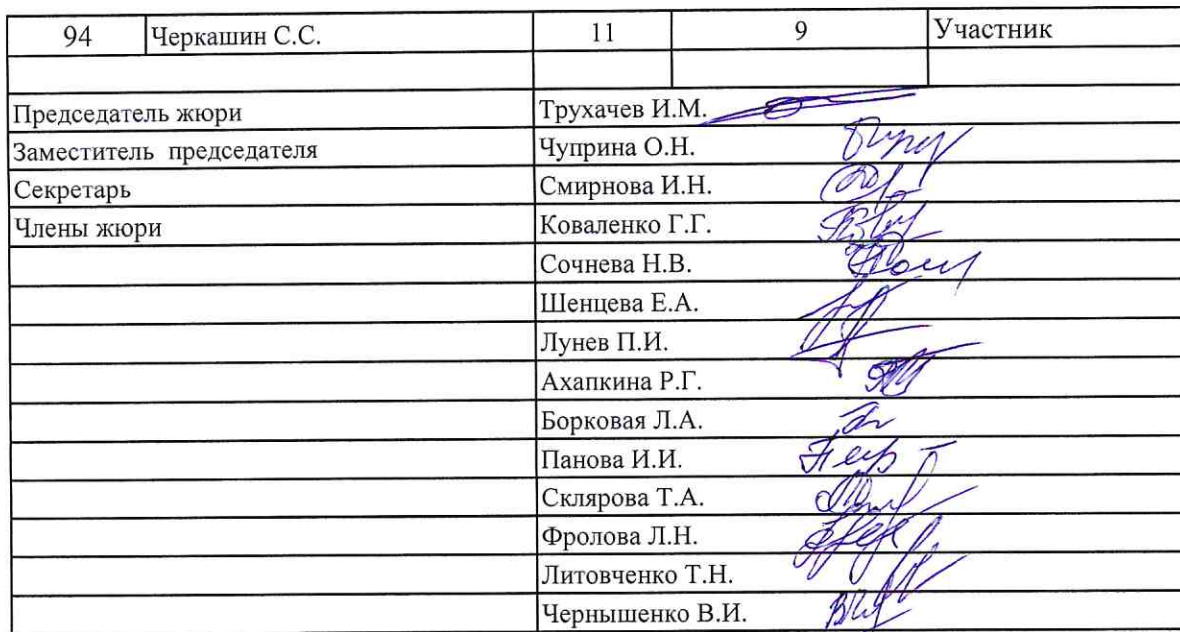 94 Черкашин С.С. 11 9 Участник
Председатель жюри Трухачев И.М.
Заместитель председателя Чуприна О.Н.
Секретарь Смирнова И.Н.
Члены жюри Коваленко Г.Г.
Сочнева Н.В.
Шенцева Е.А.
Лунев П.И.
Ахапкина Р.Г.
Борковая Л.А.
Панова И.И.
Склярова Т.А.
Фролова Л.Н.
Литовченко Т.Н.
Чернышенко В.И.